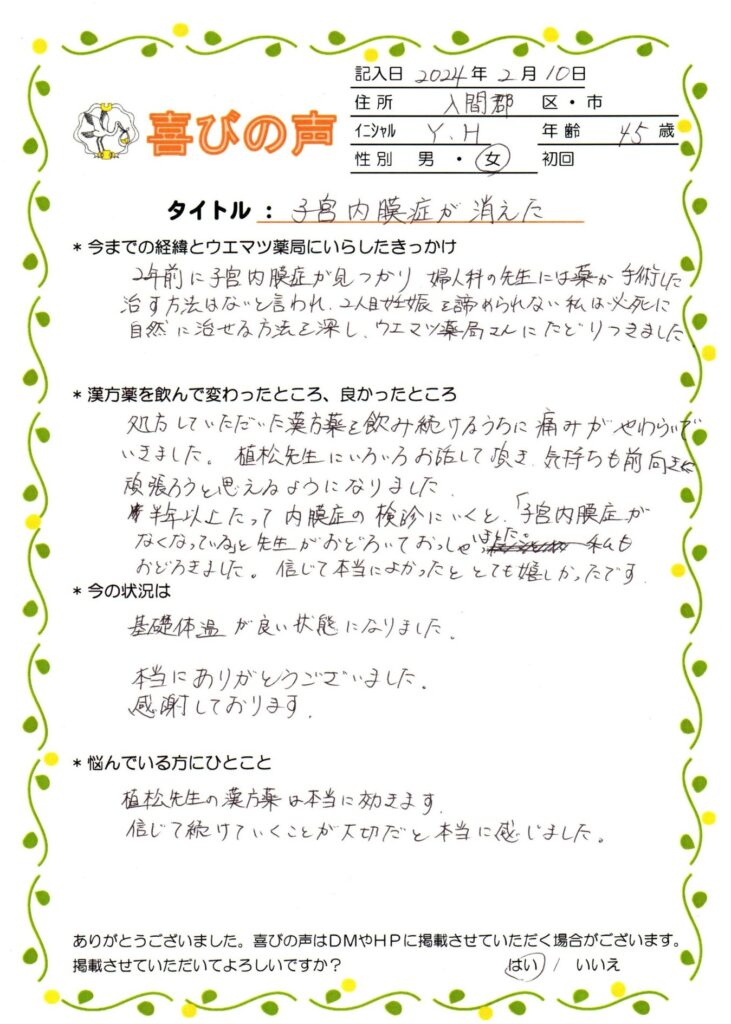 記入日 2024年 2月 10日
住所 入間郡 区・市
喜びの声
イニシャル Y.H 年齢 45歳
性別 男・女 初回
タイトル : 子宮内膜症が消えた
* 今までの経緯とウエマツ薬局にいらしたきっかけ
2年前に子宮内膜症が見つかり 婦人科の先生には薬か手術した
治す方法はないと言われ、2人目妊娠を諦められない私は必死に
自然に治せる方法を探し、ウエマツ薬局さんにたどりつきました
* 漢方薬を飲んで変わったところ、良かったところ
処方していただいた漢方薬を飲み続けるうちに痛みがやわらいで
いきました。植松先生にいろいろお話して頂き、気持ちも前向きに
頑張ろうと思えるようになりました。
半年以上たって内膜症の検診にいくと、「子宮内膜症が
なくなっている」と先生がおどろいておっしゃいました。私も
おどろきました。信じて本当によかったととても嬉しかったです。
* 今の状況は
基礎体温が良い状態になりました。
本当にありがとうございました。
感謝しております。
* 悩んでいる方にひとこと
植松先生の漢方薬は本当に効きます。
信じて続けていくことが大切だと本当に感じました。
ありがとうございました。喜びの声はDMやHPに掲載させていただく場合がございます。
掲載させていただいてよろしいですか? はい / いいえ